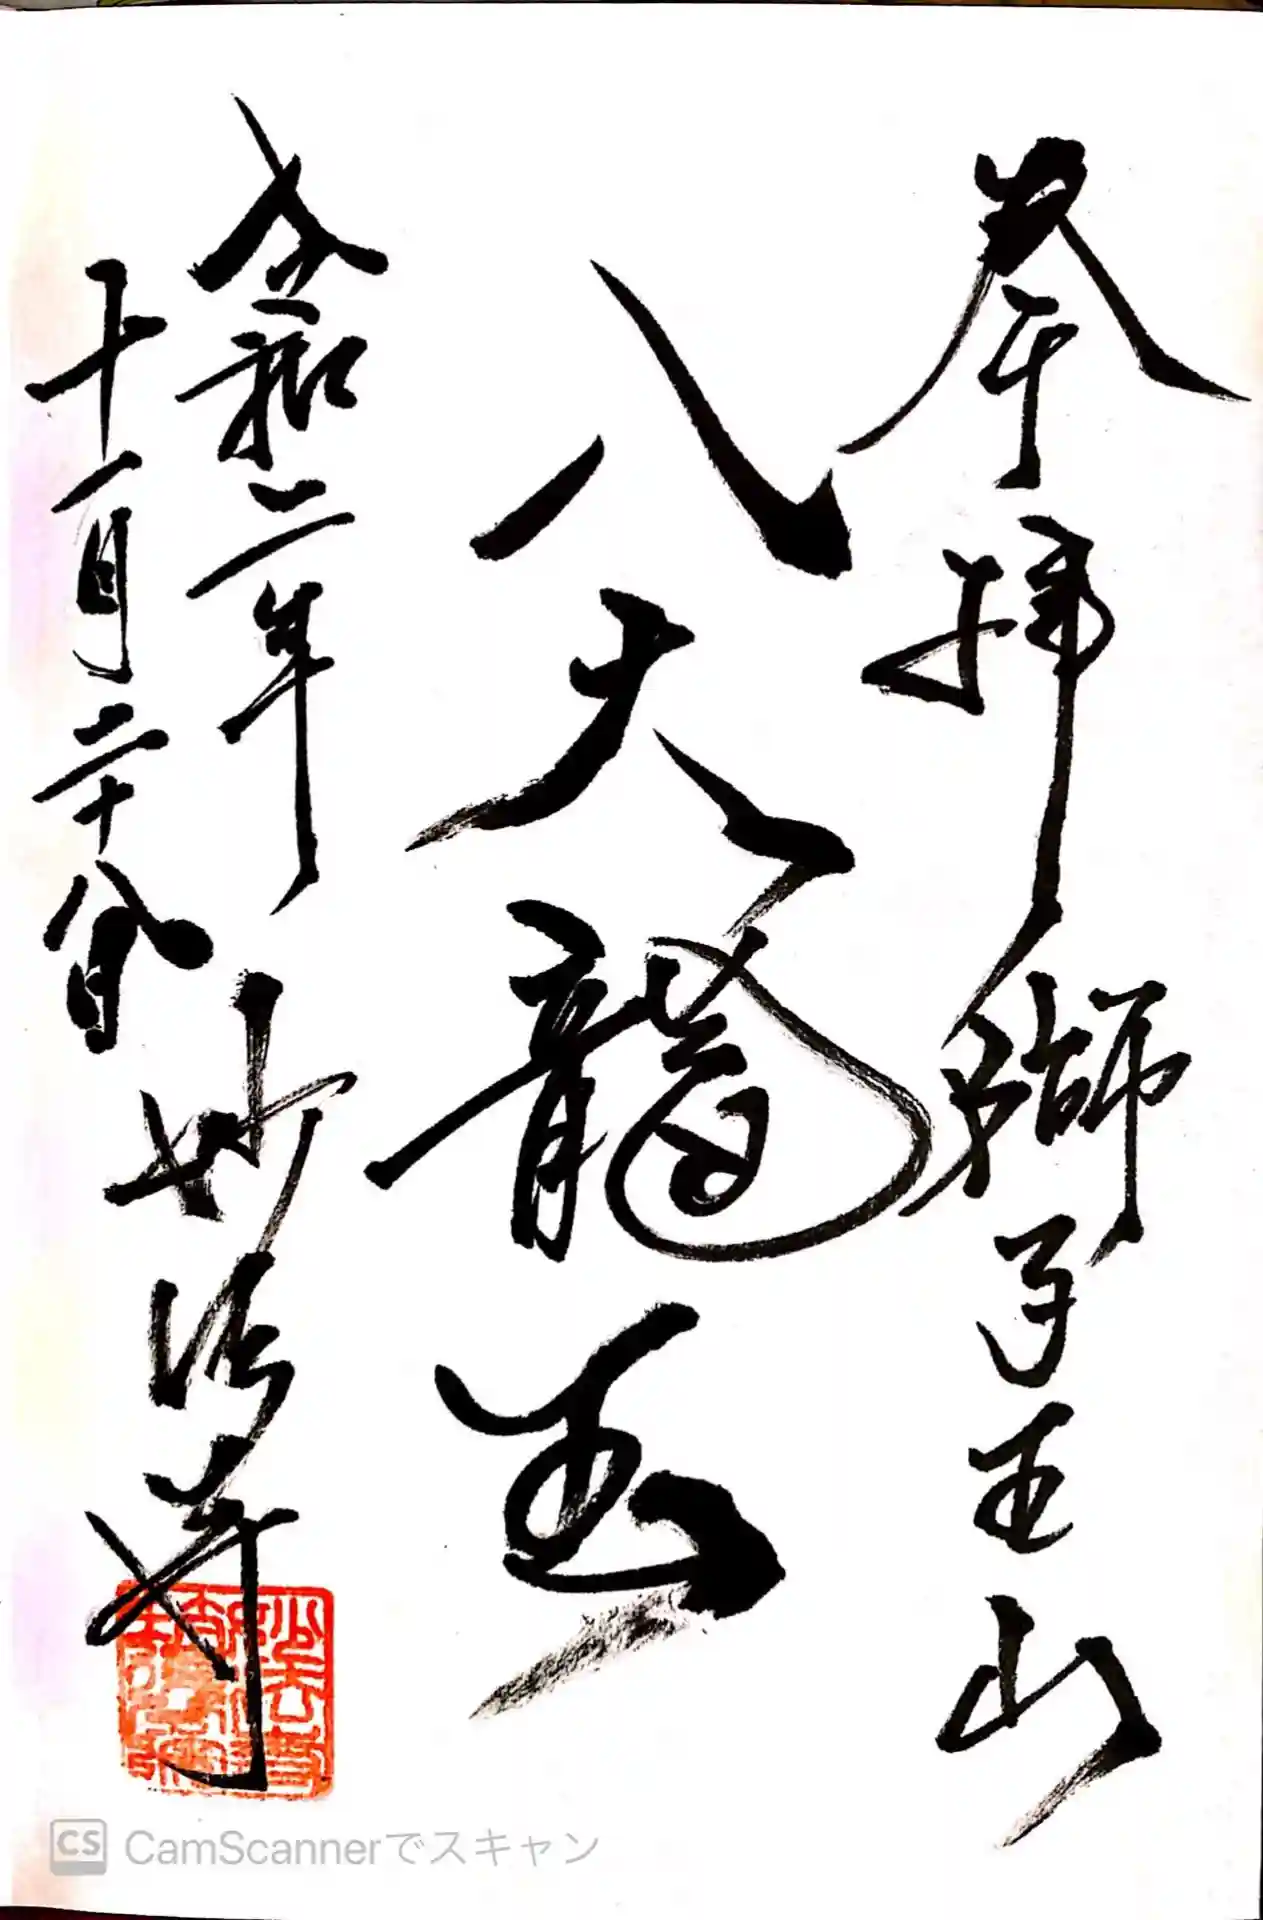 奉拝 獅子王山
八大龍王
令和二年
十一月二十八日
妙法寺
CS CamScannerでスキャン